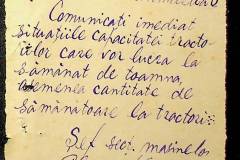 Comunicați imediat
situațiile capacității tracto-
rilor care vor lucra la
sămânat de toamna,
asemenea cantitate de
sămânătoare la tractor:
Șef sect. mașinelor